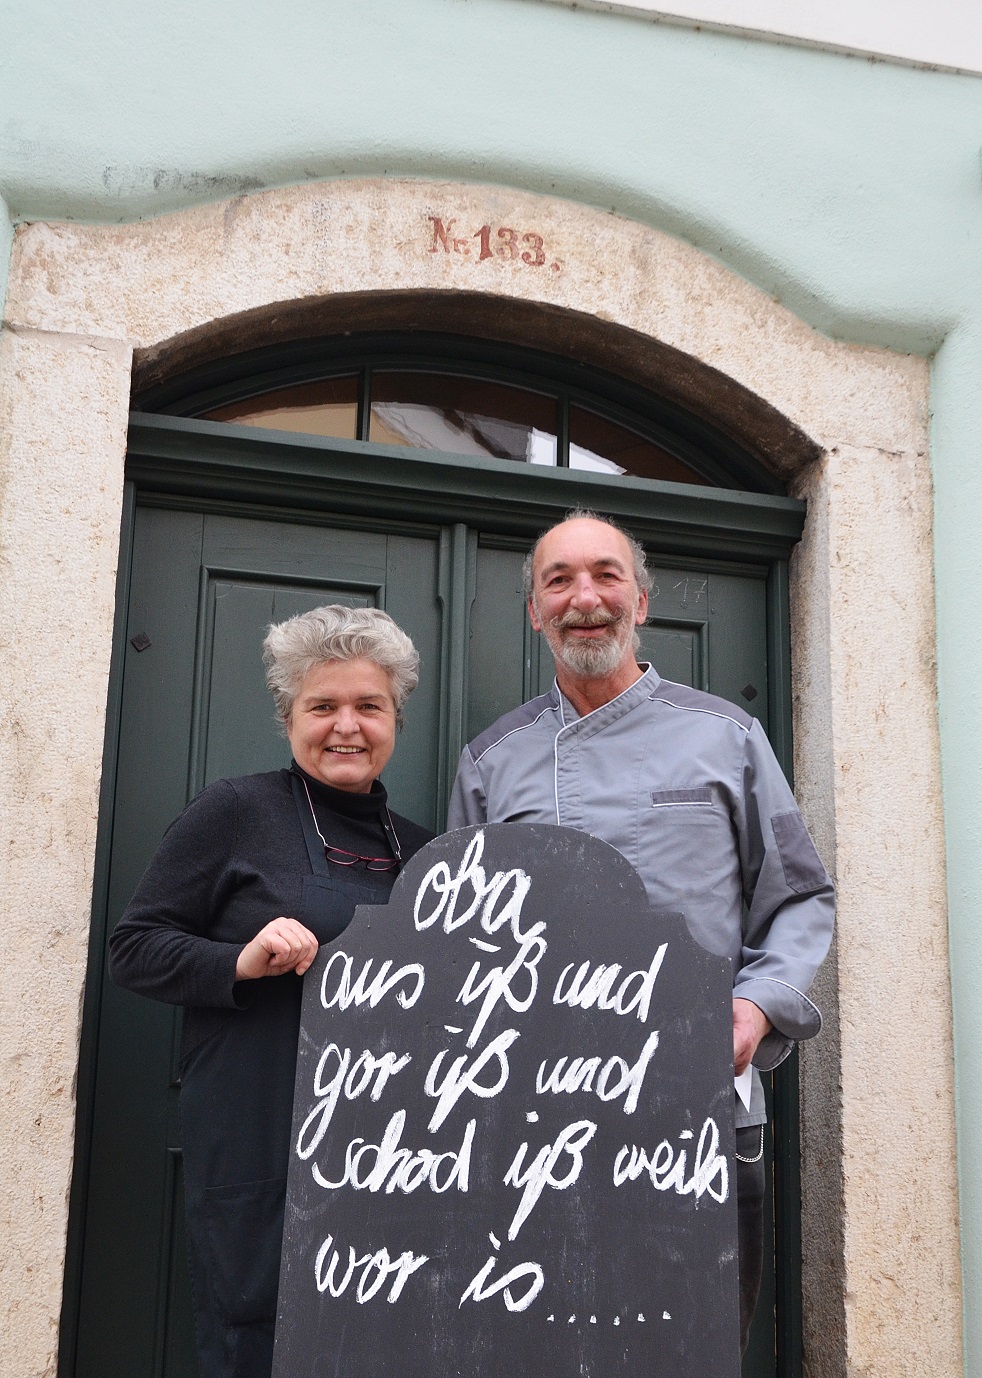 Nr. 133.
17
oba
aus iß und
gor iß und
schod iß weils
wor is......